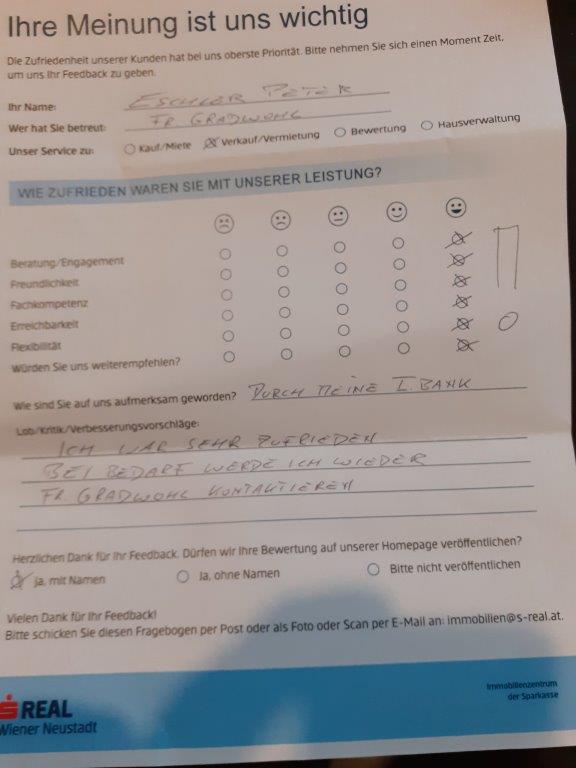 Ihre Meinung ist uns wichtig
Die Zufriedenheit unserer Kunden hat bei uns oberste Priorität. Bitte nehmen Sie sich einen Moment Zeit,
um uns Ihr Feedback zu geben.
Ihr Name: ESCHLER PETER
Wer hat Sie betreut: FR. GRADWOHL
Unser Service zu: Kauf/Miete Verkauf/Vermietung Bewertung Hausverwaltung
WIE ZUFRIEDEN WAREN SIE MIT UNSERER LEISTUNG?
Beratung/Engagement
Freundlichkeit
Fachkompetenz
Erreichbarkeit
Flexibilität
Würden Sie uns weiterempfehlen?
Wie sind Sie auf uns aufmerksam geworden? DURCH MEINE I. BANK
Lob/Kritik/Verbesserungsvorschläge:
ICH WAR SEHR ZUFRIEDEN
BEI BEDARF WERDE ICH WIEDER
FR. GRADWOHL KONTAKTIEREN
Herzlichen Dank für Ihr Feedback. Dürfen wir Ihre Bewertung auf unserer Homepage veröffentlichen?
ja, mit Namen Ja, ohne Namen Bitte nicht veröffentlichen
Vielen Dank für Ihr Feedback!
Bitte schicken Sie diesen Fragebogen per Post oder als Foto oder Scan per E-Mail an: immobilien@s-real.at.
Immobilienzentrum
der Sparkasse
S REAL
Wiener Neustadt